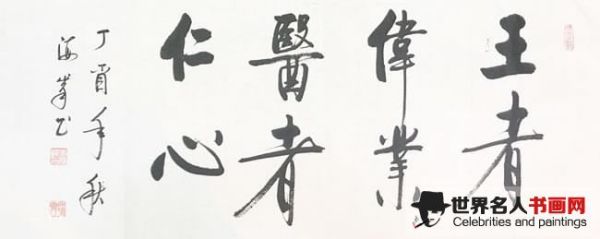 王者
偉業
醫者
仁心
丁酉年秋
海峯书
世界名人书画网
Celebrities and paintings